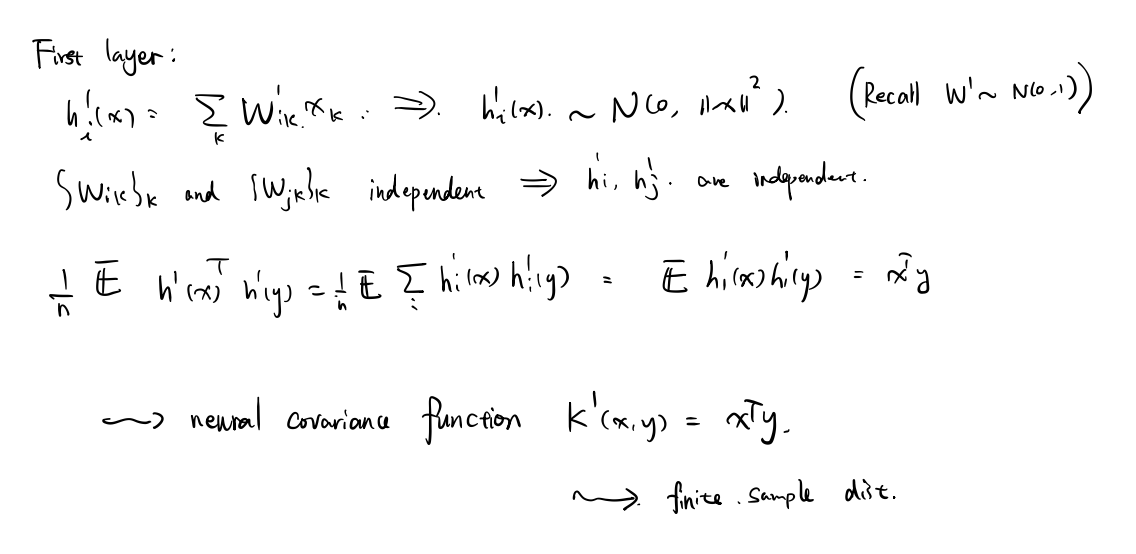 First layer:
h¹ᵢ(x) = ∑ₖ W¹ᵢₖ xₖ . ⟹ h¹ᵢ(x). ~ N(0, ||x||²). (Recall W¹ ~ N(0,1))
{Wᵢₖ}ₖ and {Wⱼₖ}ₖ independent ⟹ h¹ᵢ, h¹ⱼ. are independent.
1/n 𝔼 h¹(x)ᵀ h¹(y) = 1/n 𝔼 ∑ᵢ h¹ᵢ(x) h¹ᵢ(y) = 𝔼 h¹₁(x) h¹₁(y) = xᵀy
⇝ neural covariance function K¹(x,y) = xᵀy.
⇝ finite. sample dist.